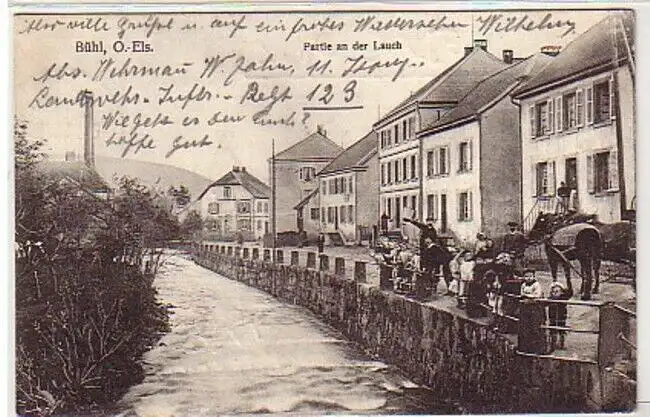 Also viele Grüße u. auf ein frohes Wiedersehen Wilhelm
Bühl, O.-Els.
Partie an der Lauch
Abs. Wehrmann W. Jahn, 11. Komp.
Landwehr-Inftr.-Regt 123
Wie geht's den
hoffe gut.